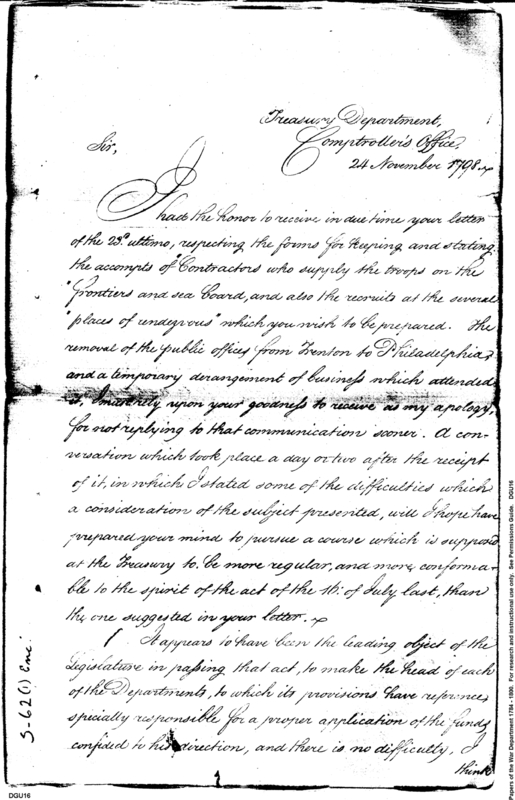 Treasury Department,
Comptroller's Office,
24 November 1798.
Sir,
I had the honor to receive in due time your letter
of the 23d ultimo, respecting the forms for keeping and stating
the accompts of "Contractors who supply the troops on the
"frontiers and sea board, and also the recruits at the several
"places of rendezvous" which you wish to be prepared. The
removal of the public offices from Trenton to Philadelphia,
and a temporary derangement of business which attended
it, I must rely upon your goodness to receive as my apology,
for not replying to that communication sooner. A con-
versation which took place a day or two after the receipt
of it, in which I stated some of the difficulties which
a consideration of the subject presented, will I hope have
prepared your mind to pursue a course which is supposed
at the Treasury to be more regular, and more conforma-
ble to the spirit of the act of the 16th of July last, than
the one suggested in your letter.
It appears to have been the leading object of the
Legislature in passing that act, to make the head of each
of the Departments, to which its provisions have reference,
specially responsible for a proper application of the funds
confided to his direction, and there is no difficulty, I
think
S-62 (1) Enc:
DGU16
Papers of the War Department 1784 - 1800. For research and instructional use only. See Permissions Guide. DGU16